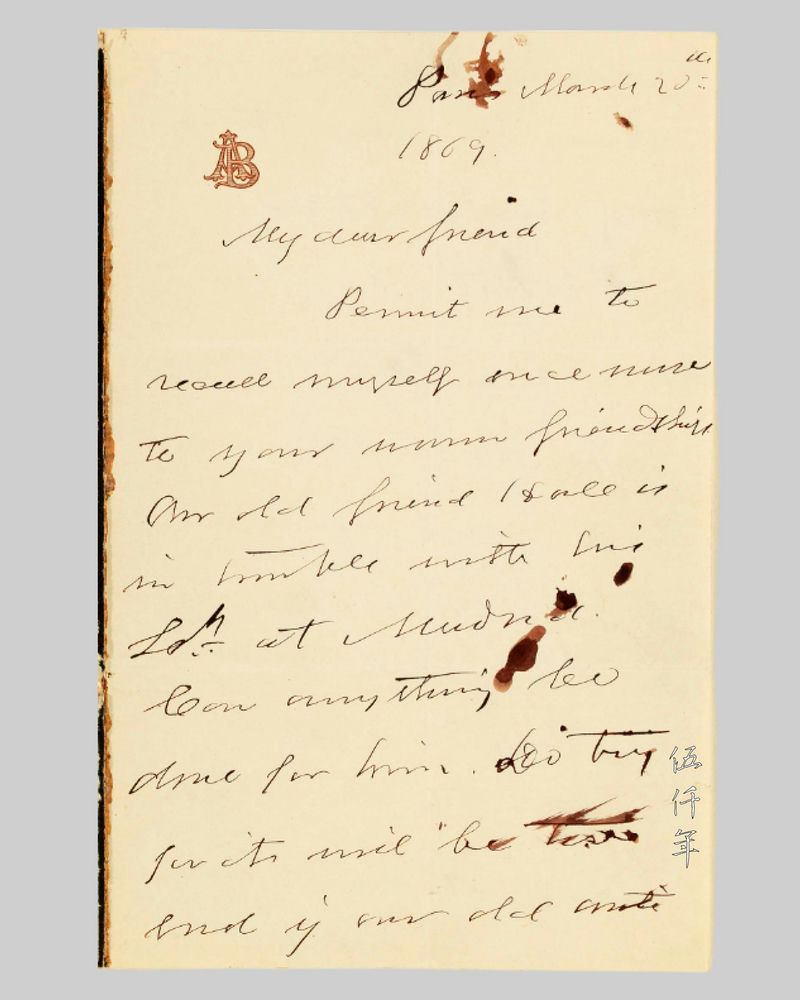 Paris March 20th
1869.
AB
My dear friend
Permit me to
recall myself once more
to your warm friendship
Our old friend Hale is
in trouble with his
at Madrid.
Can anything be
done for him. Do try
for it will be
end if our old anti
伍仟年